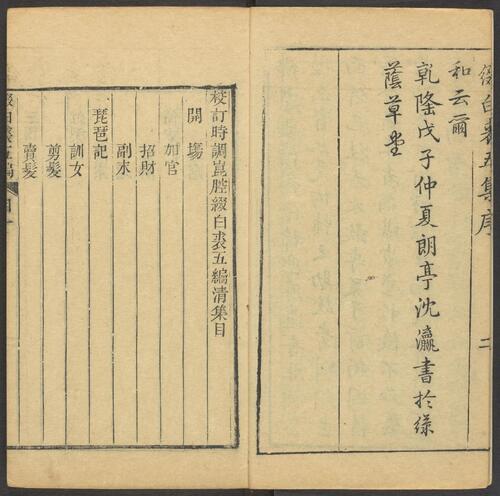 綴白裘五集序 二
和云爾
乾隆戊子仲夏朗亭沈瀛書於綠
蔭草堂
校訂時調崑腔綴白裘五編清集目
開塲
加官
招財
副末
琵琶記
訓女
剪髮
賣髮
綴白裘五編